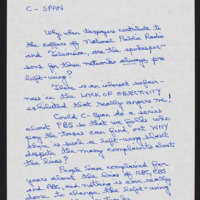 C-SPAN
Why when taxpayers contribute to
the coffers of National Public Radio
and Television, are the spokesper-
sons for these networks always pro
left-wing?
There is an inherent
in the LACK OF OBJECTIVITY
exhibited that really angers me!
Could C-Span do a series
about PBS so that we folks who
pay the taxes can find out WHY
there is such a left-wing slant
despite the many complaints about
the bias?
People have complained for
years about the bias of NBC, CBS
and ABC, and nothing is ever really
done to change the left-wing